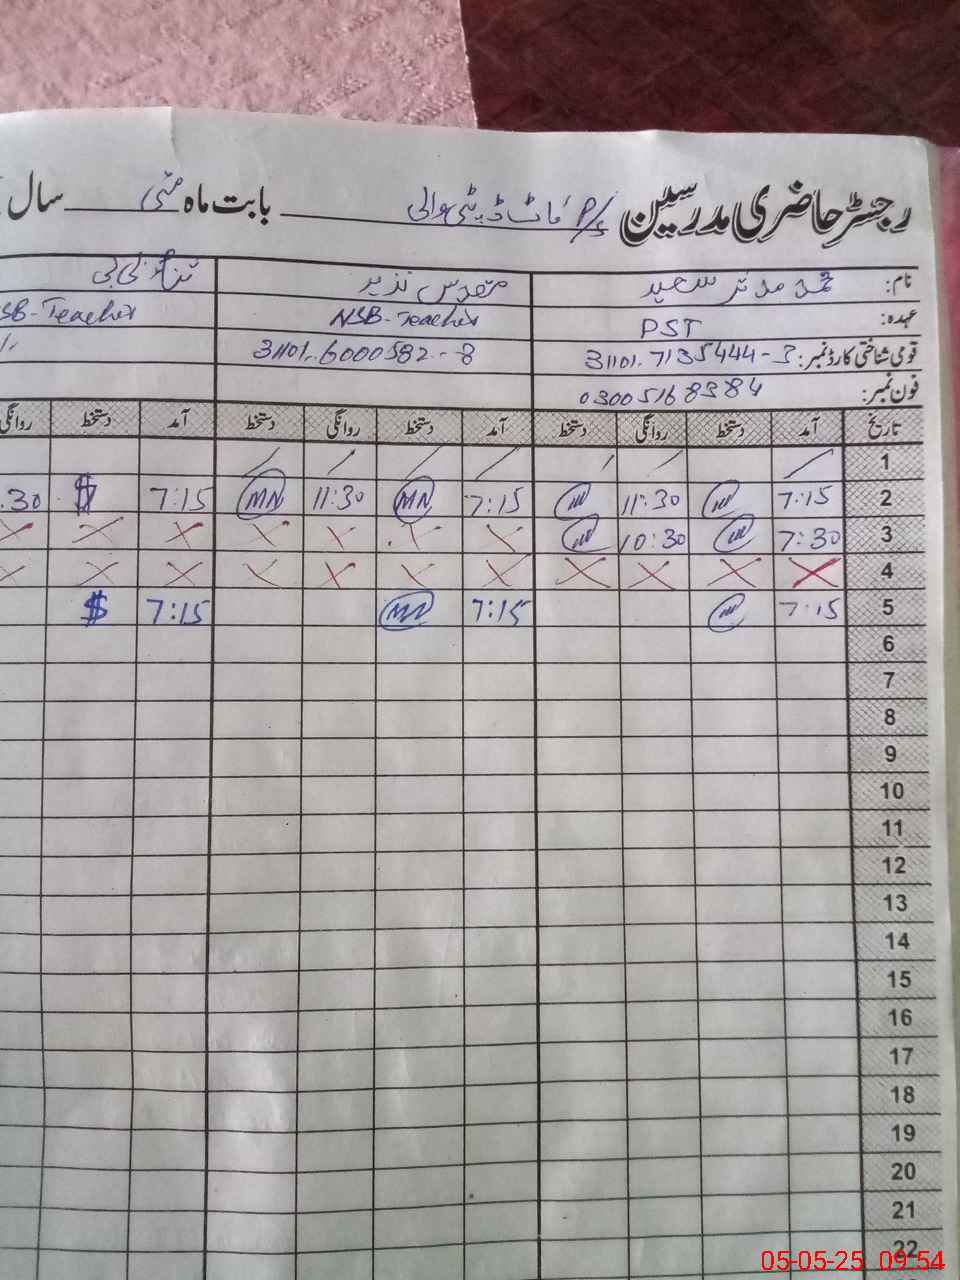 رجسٹر حاضری مدرسین P/S ڈیٹی والی بابت ماہ مئی سال
نام: محمد مدثر سعید مقدس نذیر بی بی
عہدہ: PST NSB-Teacher SB-Teacher
قومی شناختی کارڈ نمبر: 31101.7135444-3 31101.6000582-8
فون نمبر: 03005168384
تاریخ آمد دستخط روانگی دستخط آمد دستخط روانگی دستخط آمد دستخط روانگی
1
2 7:15 11:30 7:15 MN 11:30 MN 7:15 $ .30
3 7:30 10:30 X X X X X X X
4 X X X X X X X X X X X
5 7:15 7:15 MN 7:15 $
6
7
8
9
10
11
12
13
14
15
16
17
18
19
20
21
22
05-05-25 09:54